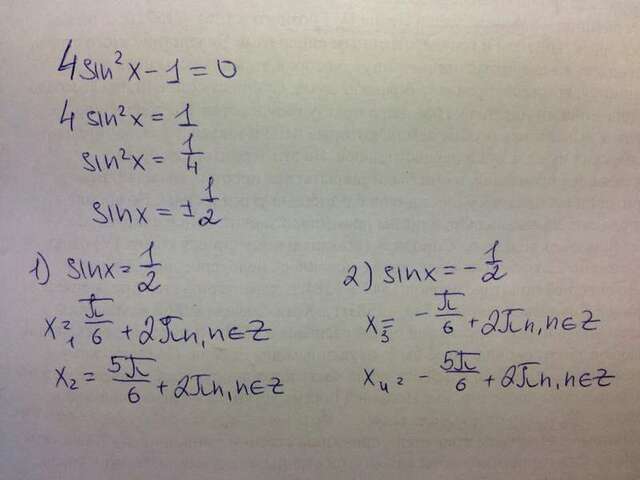 4sin²x − 1 = 0
4 sin²x = 1
sin²x = 1/4
sinx = ±1/2
1) sinx = 1/2
x₁ = π/6 + 2πn, n∈Z
x₂ = 5π/6 + 2πn, n∈Z
2) sinx = −1/2
x₃ = −π/6 + 2πn, n∈Z
x₄ = −5π/6 + 2πn, n∈Z